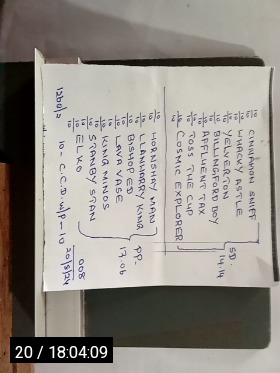 10/10 CINNAMON SNIFF
10/10 WHACKY ASTLE
10/10 YELVERTON
10/10 BILLINGFORD BOY
10/10 AFFLUENT TAX
10/10 TOSS THE CUP
COSMIC EXPLORER
SD.
14.14
10/10 HORNSHAY MAN
10/10 LLANHARRY KING
10/10 BISHOP ED
10/10 LAVA VAGE
10/10 KING MINOS
10/10 STANBY STAN
ELKO
PP.
17.06
10 - C.C.D. W/P - 10
008
20/5/24
20 / 18:04:09